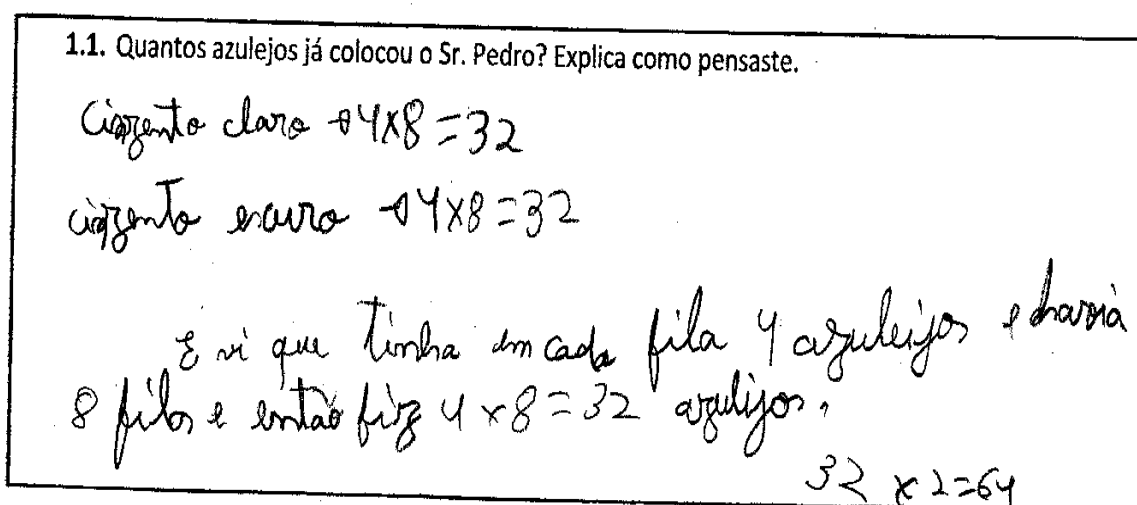 1.1. Quantos azulejos já colocou o Sr. Pedro? Explica como pensaste.
Cinzento claro → 4x8=32
cinzento escuro → 4x8=32
E vi que tinha em cada fila 4 azuleijos e havia
8 filas e então fiz 4x8=32 azulijos.
32 x 2=64